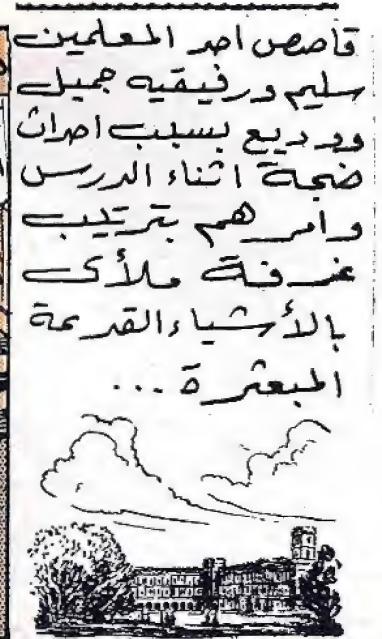 قاصص احد المعلمين
سليم ورفيقيه جميل
ووديع بسبب احداث
ضجة اثناء الدرس
وامرهم بترتيب
غرفة ملأى
بالأشياء القديمة
المبعثرة...